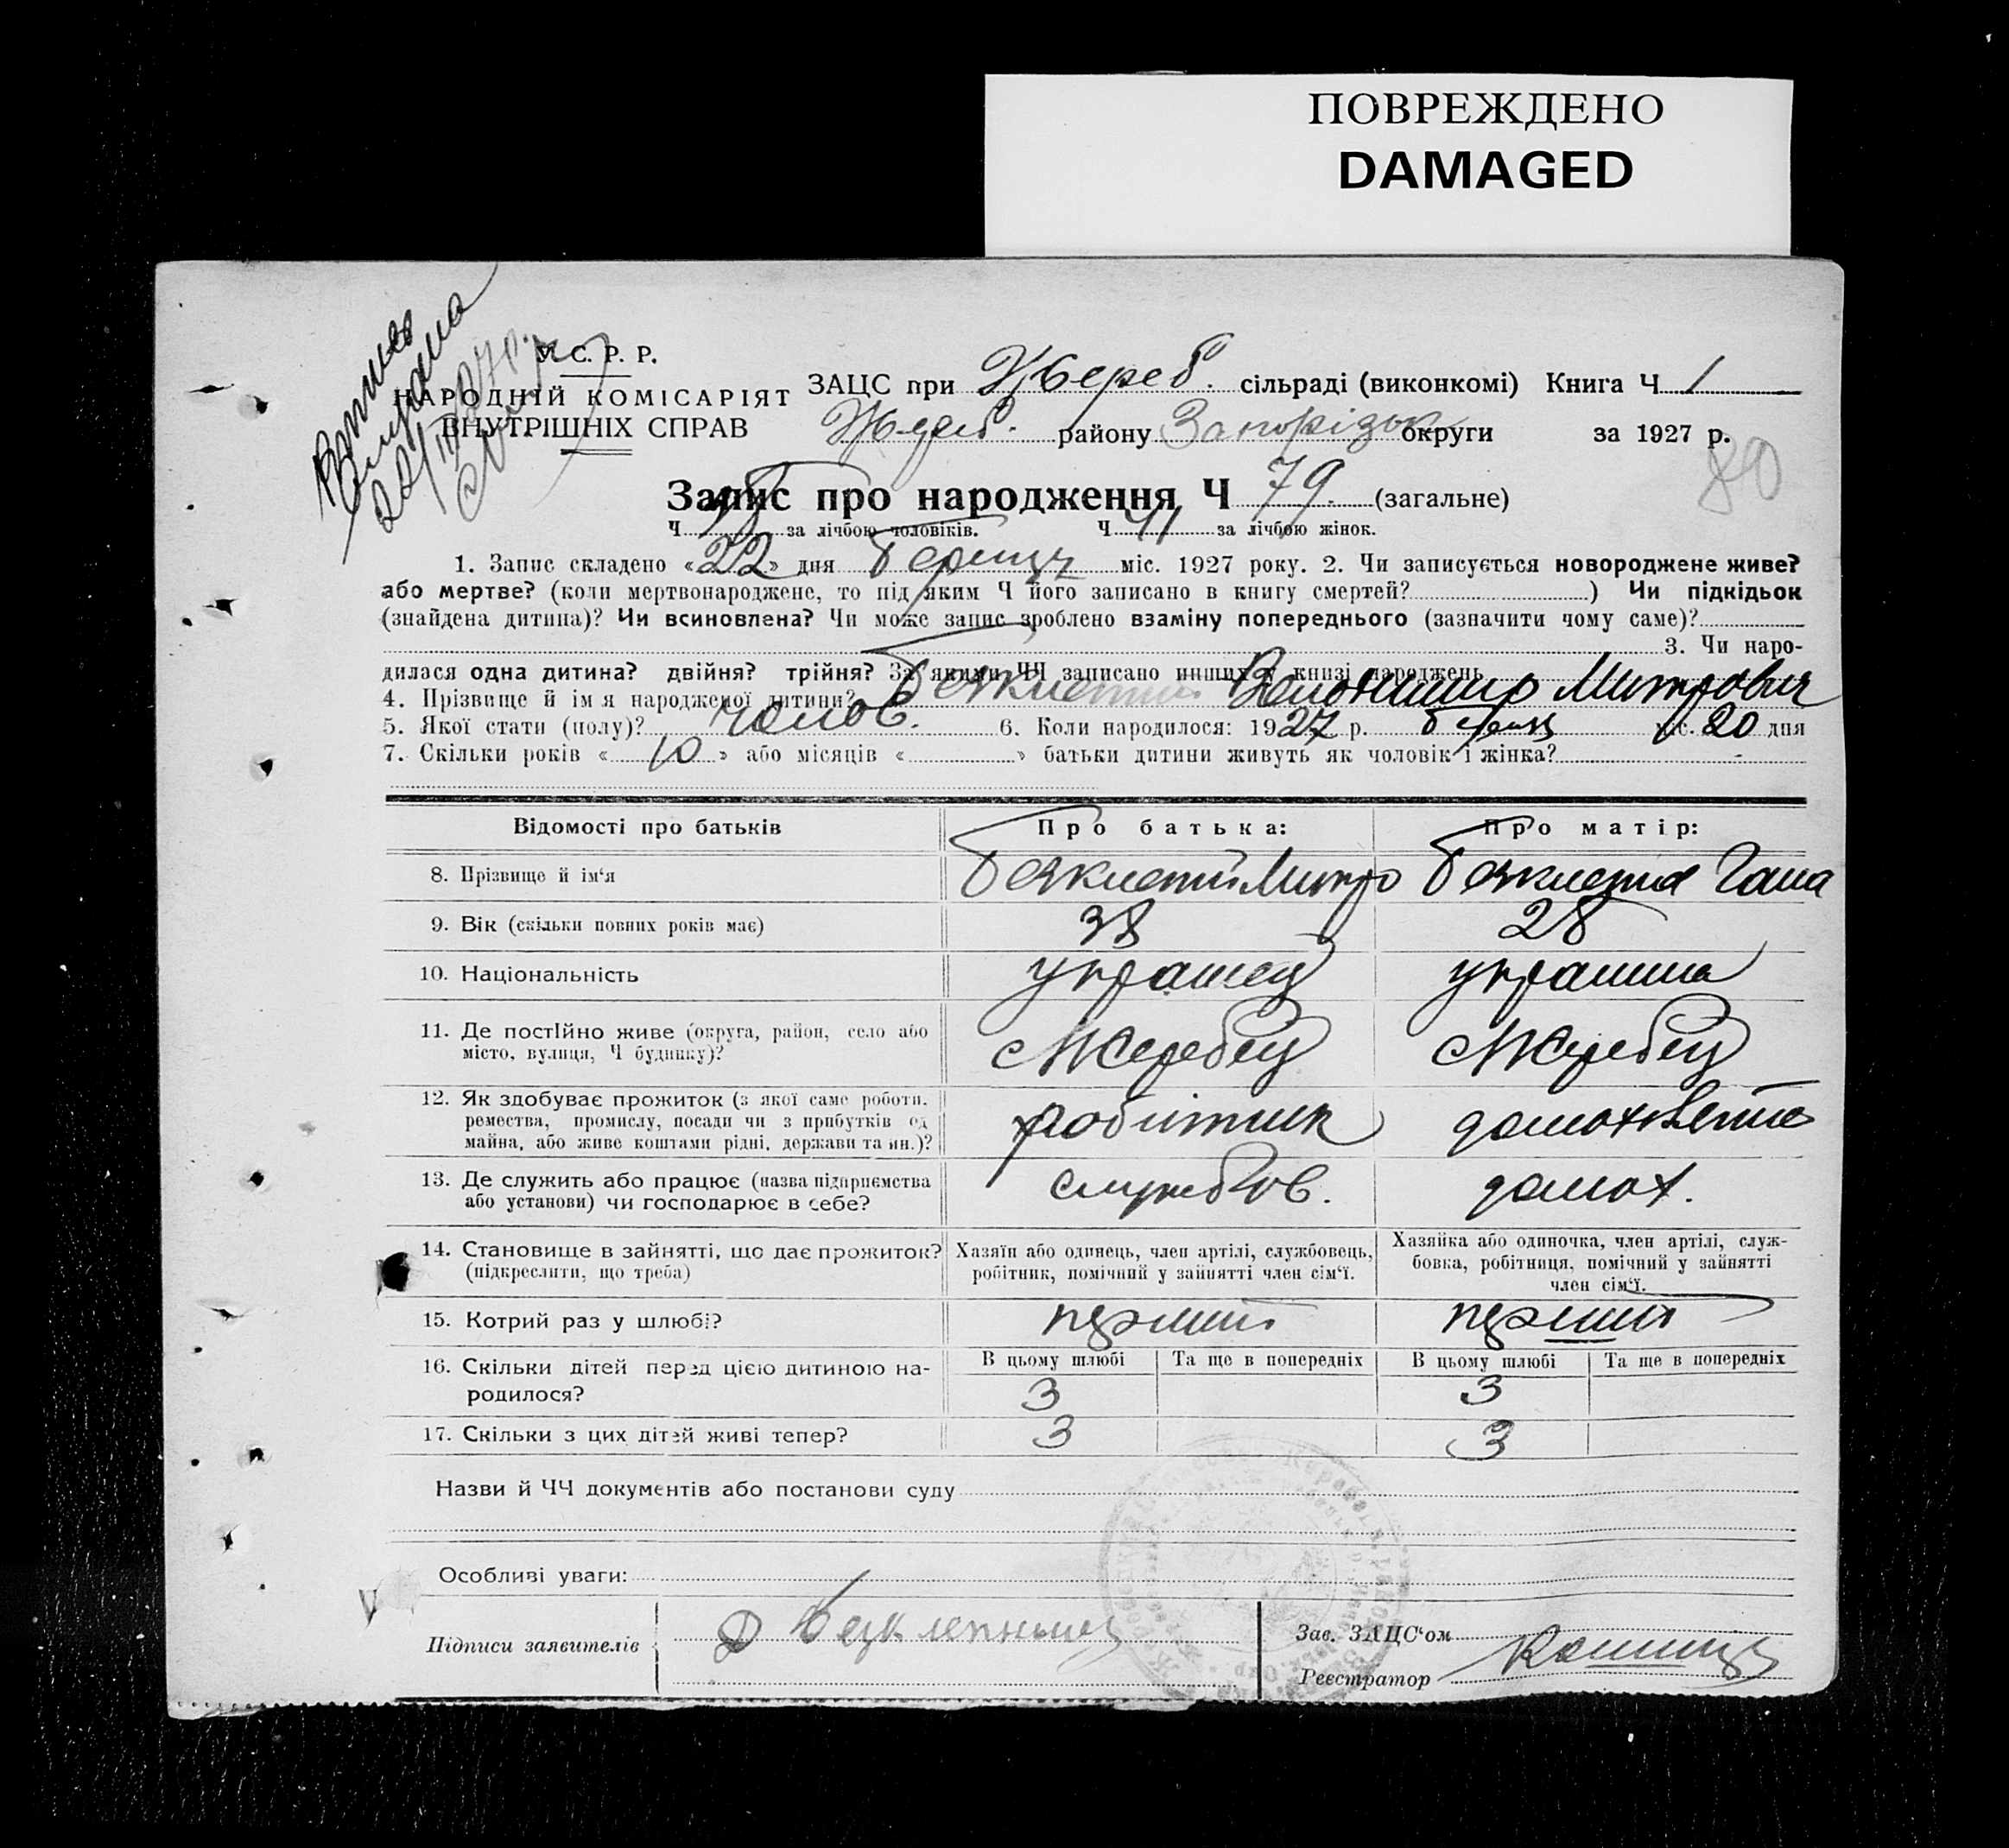 ПОВРЕЖДЕНО
DAMAGED
У. С. Р. Р.
НАРОДНІЙ КОМІСАРІЯТ
ВНУТРІШНІХ СПРАВ
Витяг
22/III 27 р.
ЗАЦС при Жереб. сільраді (виконкомі) Книга Ч 1
Жереб. району Запорізьк округи за 1927 р.
80
Запис про народження Ч 79 (загальне)
Ч 38 за лічбою чоловіків. Ч 41 за лічбою жінок.
1. Запис складено «22» дня березня міс. 1927 року. 2. Чи записується новороджене живе?
або мертве? (коли мертвонароджене, то під яким Ч його записано в книгу смертей? ) Чи підкідьок
(знайдена дитина)? Чи всиновлена? Чи може запис зроблено взаміну попереднього (зазначити чому саме)?
3. Чи наро-
дилася одна дитина? двійня? трійня? За якими ЧЧ записано инших у книзі народжень
4. Прізвище й ім я народженої дитини? Володимир Митрович
5. Якої стати (полу)? чолов. 6. Коли народилося: 1927 р. березня міс. 20 дня
7. Скільки років «10» або місяців « » батьки дитини живуть як чоловік і жінка?
Відомості про батьків Про батька: Про матір:
8. Прізвище й ім‘я Митро Гана
9. Вік (скільки повних років має) 38 28
10. Національність українец українка
11. Де постійно живе (округа, район, село або
місто, вулиця, Ч будинку)? с Жеребец с Жеребец
12. Як здобуває прожиток (з якої саме роботи.
ремества, промислу, посади чи з прибутків од
майна, або живе коштами рідні, держави та ин.)? робітник
13. Де служить або працює (назва підприємства
або установи) чи господарює в себе? службов. домох.
14. Становище в зайнятті, що дає прожиток?
(підкреслити, що треба)
Хазяїн або одинець, член артілі, службовець,
робітник, помічний у зайнятті член сім‘ї.
Хазяйка або одиночка, член артілі, служ-
бовка, робітниця, помічний у зайнятті
член сім‘ї.
15. Котрий раз у шлюбі? перший перший
16. Скільки дітей перед цією дитиною на-
родилося?
В цьому шлюбі Та ще в попередніх В цьому шлюбі Та ще в попередніх
3 3
17. Скільки з цих дітей живі тепер? 3 3
Назви й ЧЧ документів або постанови суду
Особливі уваги:
Підписи заявителів
Зав. ЗАЦС‘ом
Реєстратор